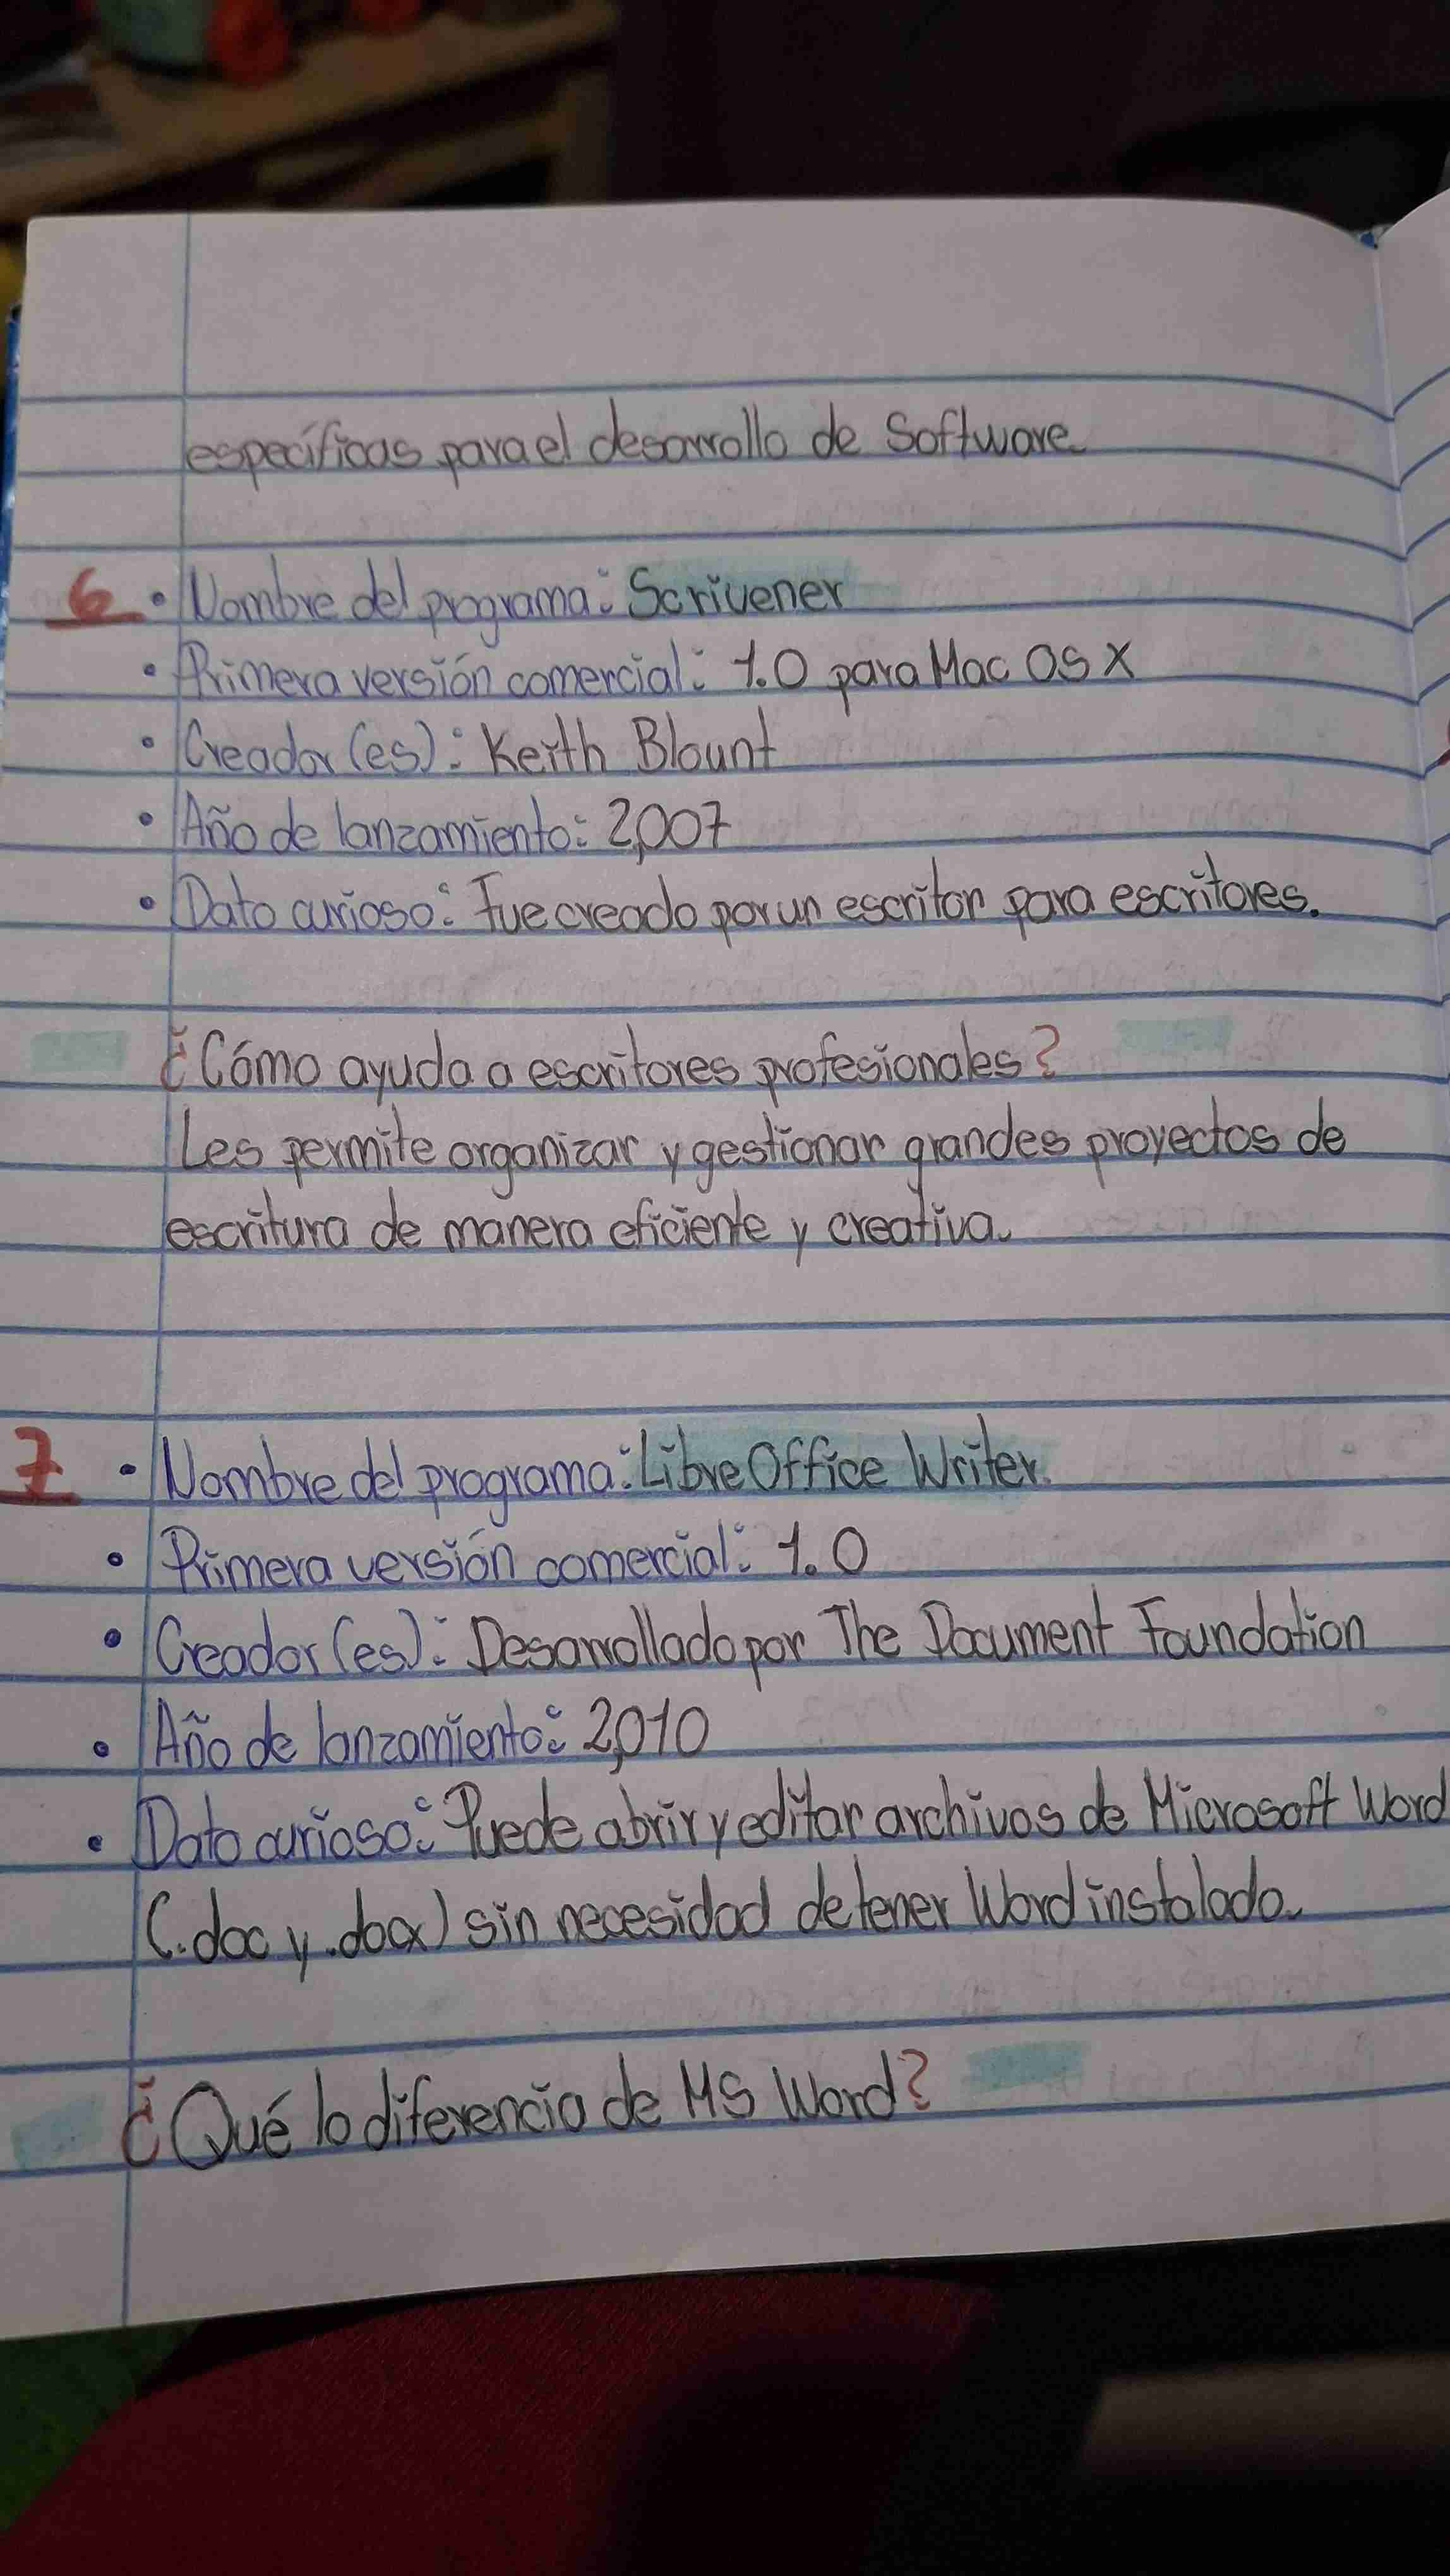 específicas para el desarrollo de Software.
6 • Nombre del programa: Scrivener
• Primera versión comercial: 1.0 para Mac OS X
• Creador (es): Keith Blount
• Año de lanzamiento: 2,007
• Dato curioso: Fue creado por un escritor para escritores.
¿Cómo ayuda a escritores profesionales?
Les permite organizar y gestionar grandes proyectos de
escritura de manera eficiente y creativa.
7 • Nombre del programa: Libre Office Writer.
• Primera versión comercial: 1.0
• Creador (es): Desarrollado por The Document Foundation
• Año de lanzamiento: 2,010
• Dato curioso: Puede abrir y editar archivos de Microsoft Word
(.doc y .docx) sin necesidad de tener Word instalado.
¿Qué lo diferencia de MS Word?